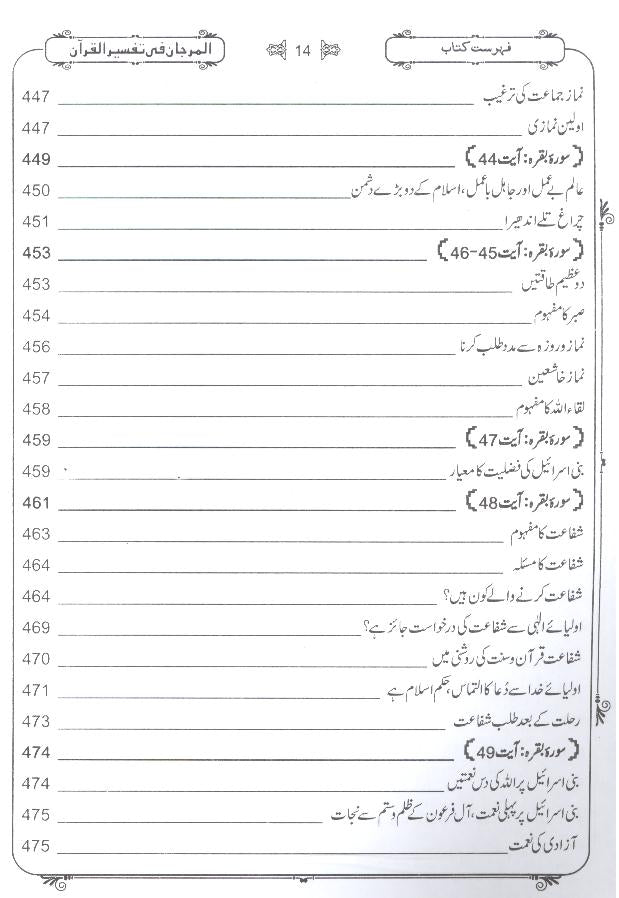 فہرست کتاب 14 المرجان فی تفسیر القرآن
نماز جماعت کی ترغیب 447
اولین نمازی 447
﴿سورۂ بقرہ: آیت 44﴾ 449
عالم بے عمل اور جاہل باعمل، اسلام کے دو بڑے دشمن 450
چراغ تلے اندھیرا 451
﴿سورۂ بقرہ: آیت 45-46﴾ 453
دو عظیم طاقتیں 453
صبر کا مفہوم 454
نماز و روزہ سے مدد طلب کرنا 456
نماز خاشعین 457
لقاء اللہ کا مفہوم 458
﴿سورۂ بقرہ: آیت 47﴾ 459
بنی اسرائیل کی فضلیت کا معیار 459
﴿سورۂ بقرہ: آیت 48﴾ 461
شفاعت کا مفہوم 463
شفاعت کا مسئلہ 464
شفاعت کرنے والے کون ہیں؟ 464
اولیائے الٰہی سے شفاعت کی درخواست جائز ہے؟ 469
شفاعت قرآن و سنت کی روشنی میں 470
اولیائے خدا سے دُعا کا التماس، حکم اسلام ہے 471
رحلت کے بعد طلب شفاعت 473
﴿سورۂ بقرہ: آیت 49﴾ 474
بنی اسرائیل پر اللہ کی دس نعمتیں 474
بنی اسرائیل پر پہلی نعمت، آل فرعون کے ظلم و ستم سے نجات 475
آزادی کی نعمت 475